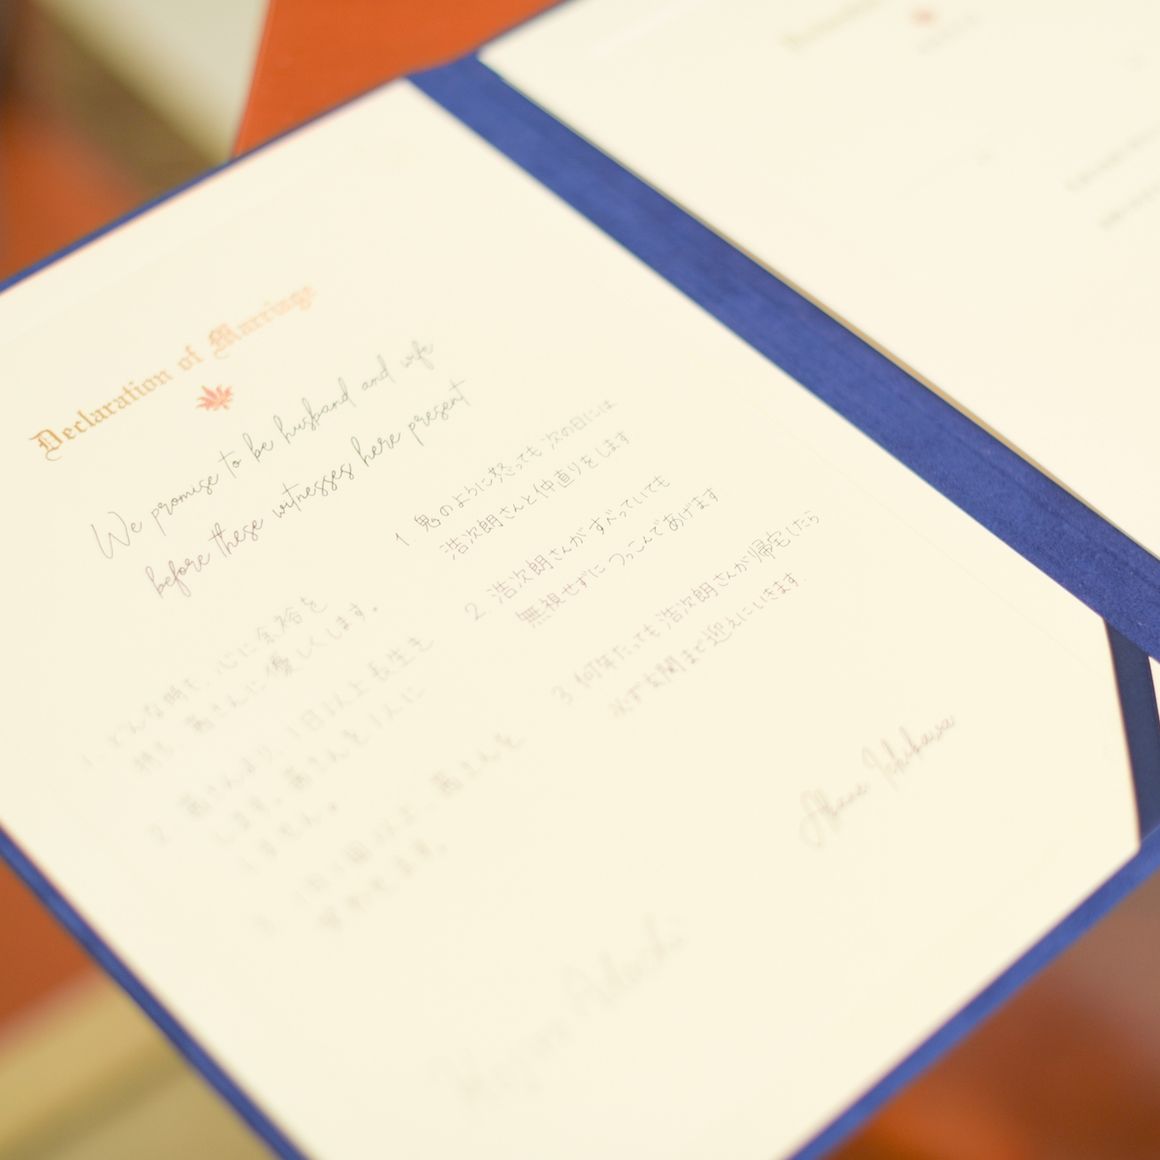 Declaration of Marriage
We promise to be husband and wife
before these witnesses here present
1. どんな時も、心に余裕を
持ち、茜さんに優しくします。
2. 茜さんより、1日以上長生き
します。茜さんを1人に
しません。
3. 1日1回以上、茜さんを
笑わせます。
1 鬼のように怒っても次の日には
浩次朗さんと仲直りをします
2. 浩次朗さんがすべっていても
無視せずに つっこんであげます
3 何年たっても浩次朗さんが帰宅したら
必ず玄関まで迎えにいきます.
Akane Ichikawa
Adachi